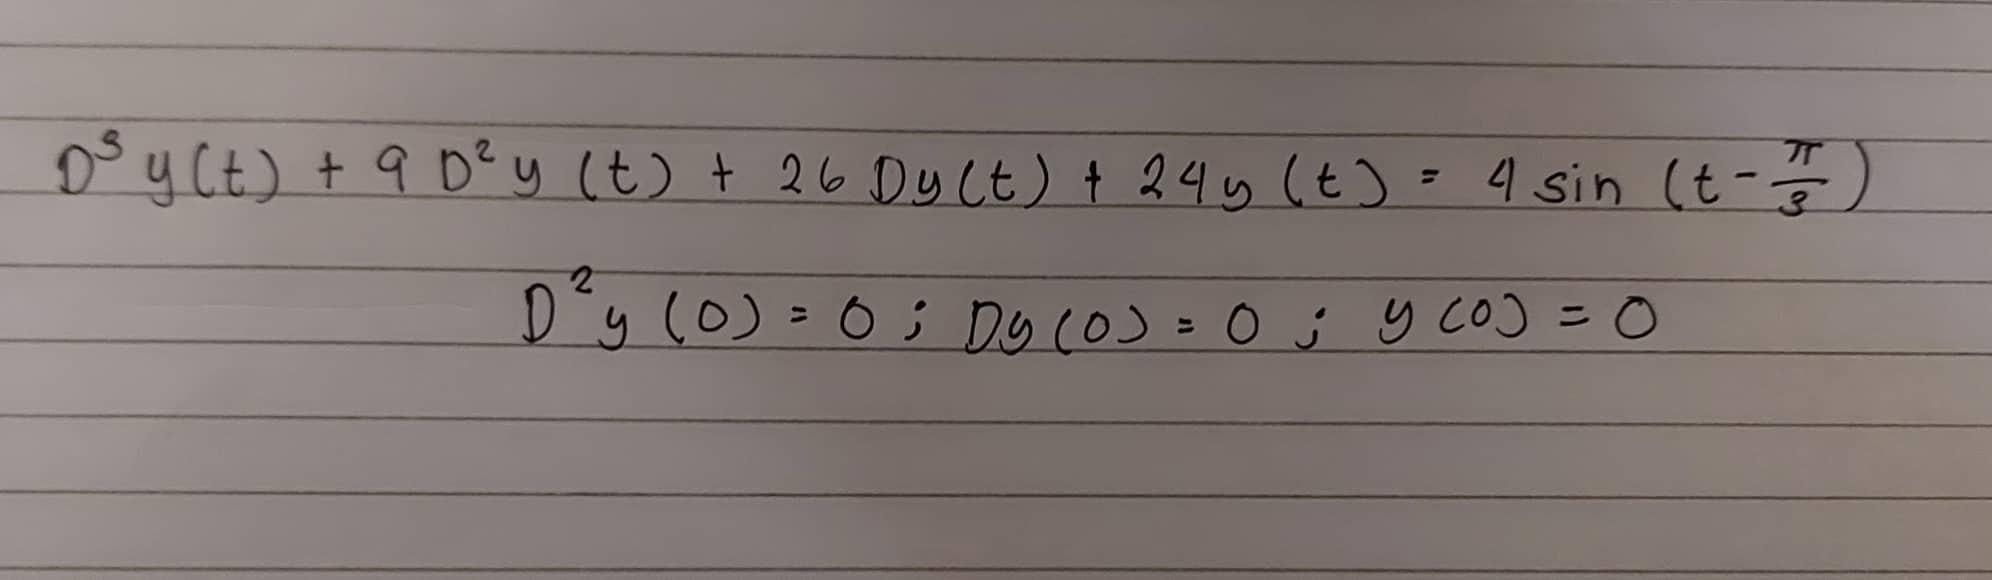 D³ y(t) + 9 D² y (t) + 26 Dy(t) + 24y (t) = 4 sin (t - π/3)
D² y (0) = 0 ; Dy(0) = 0 ; y (0) = 0